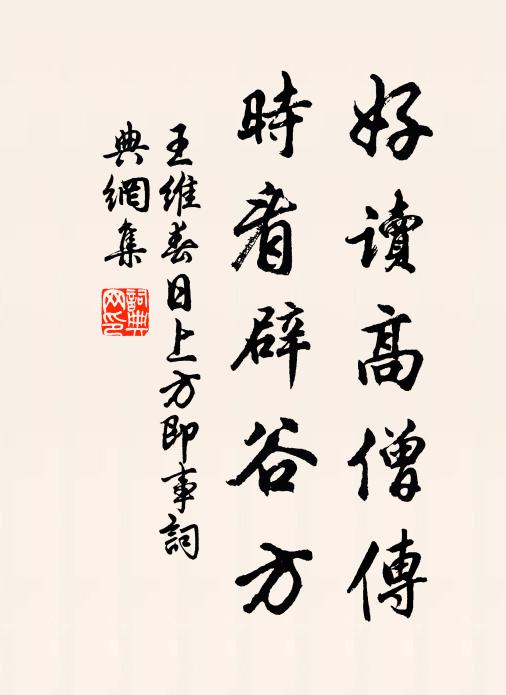 好讀高僧傳
時看辟谷方
王維春日上方即事詞
典網集
詞典網印